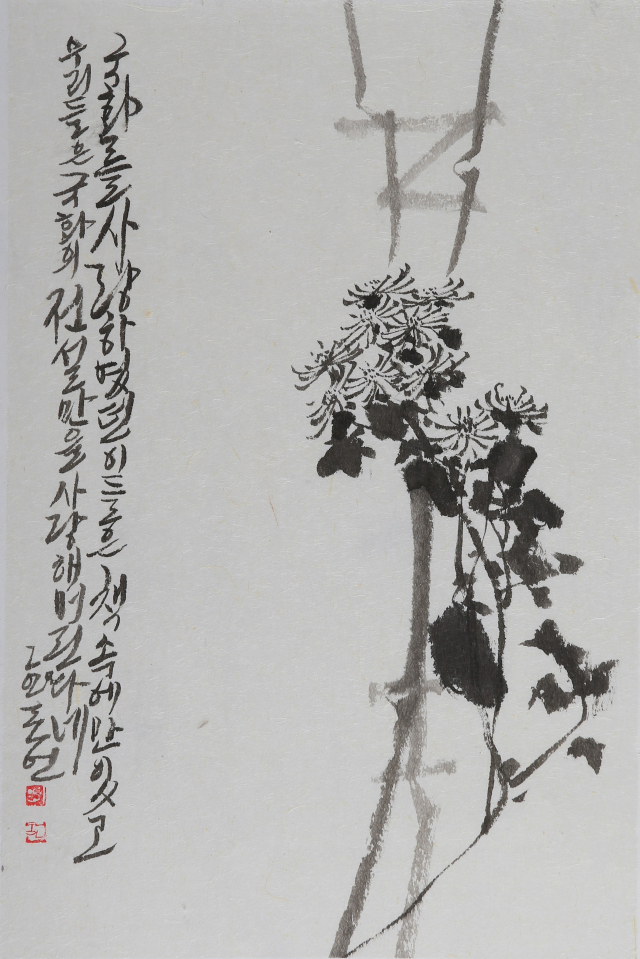 국화를 사랑하였던 이들은 책 속에만 있고
우리들은 국화의 전설만을 사랑해버린다네